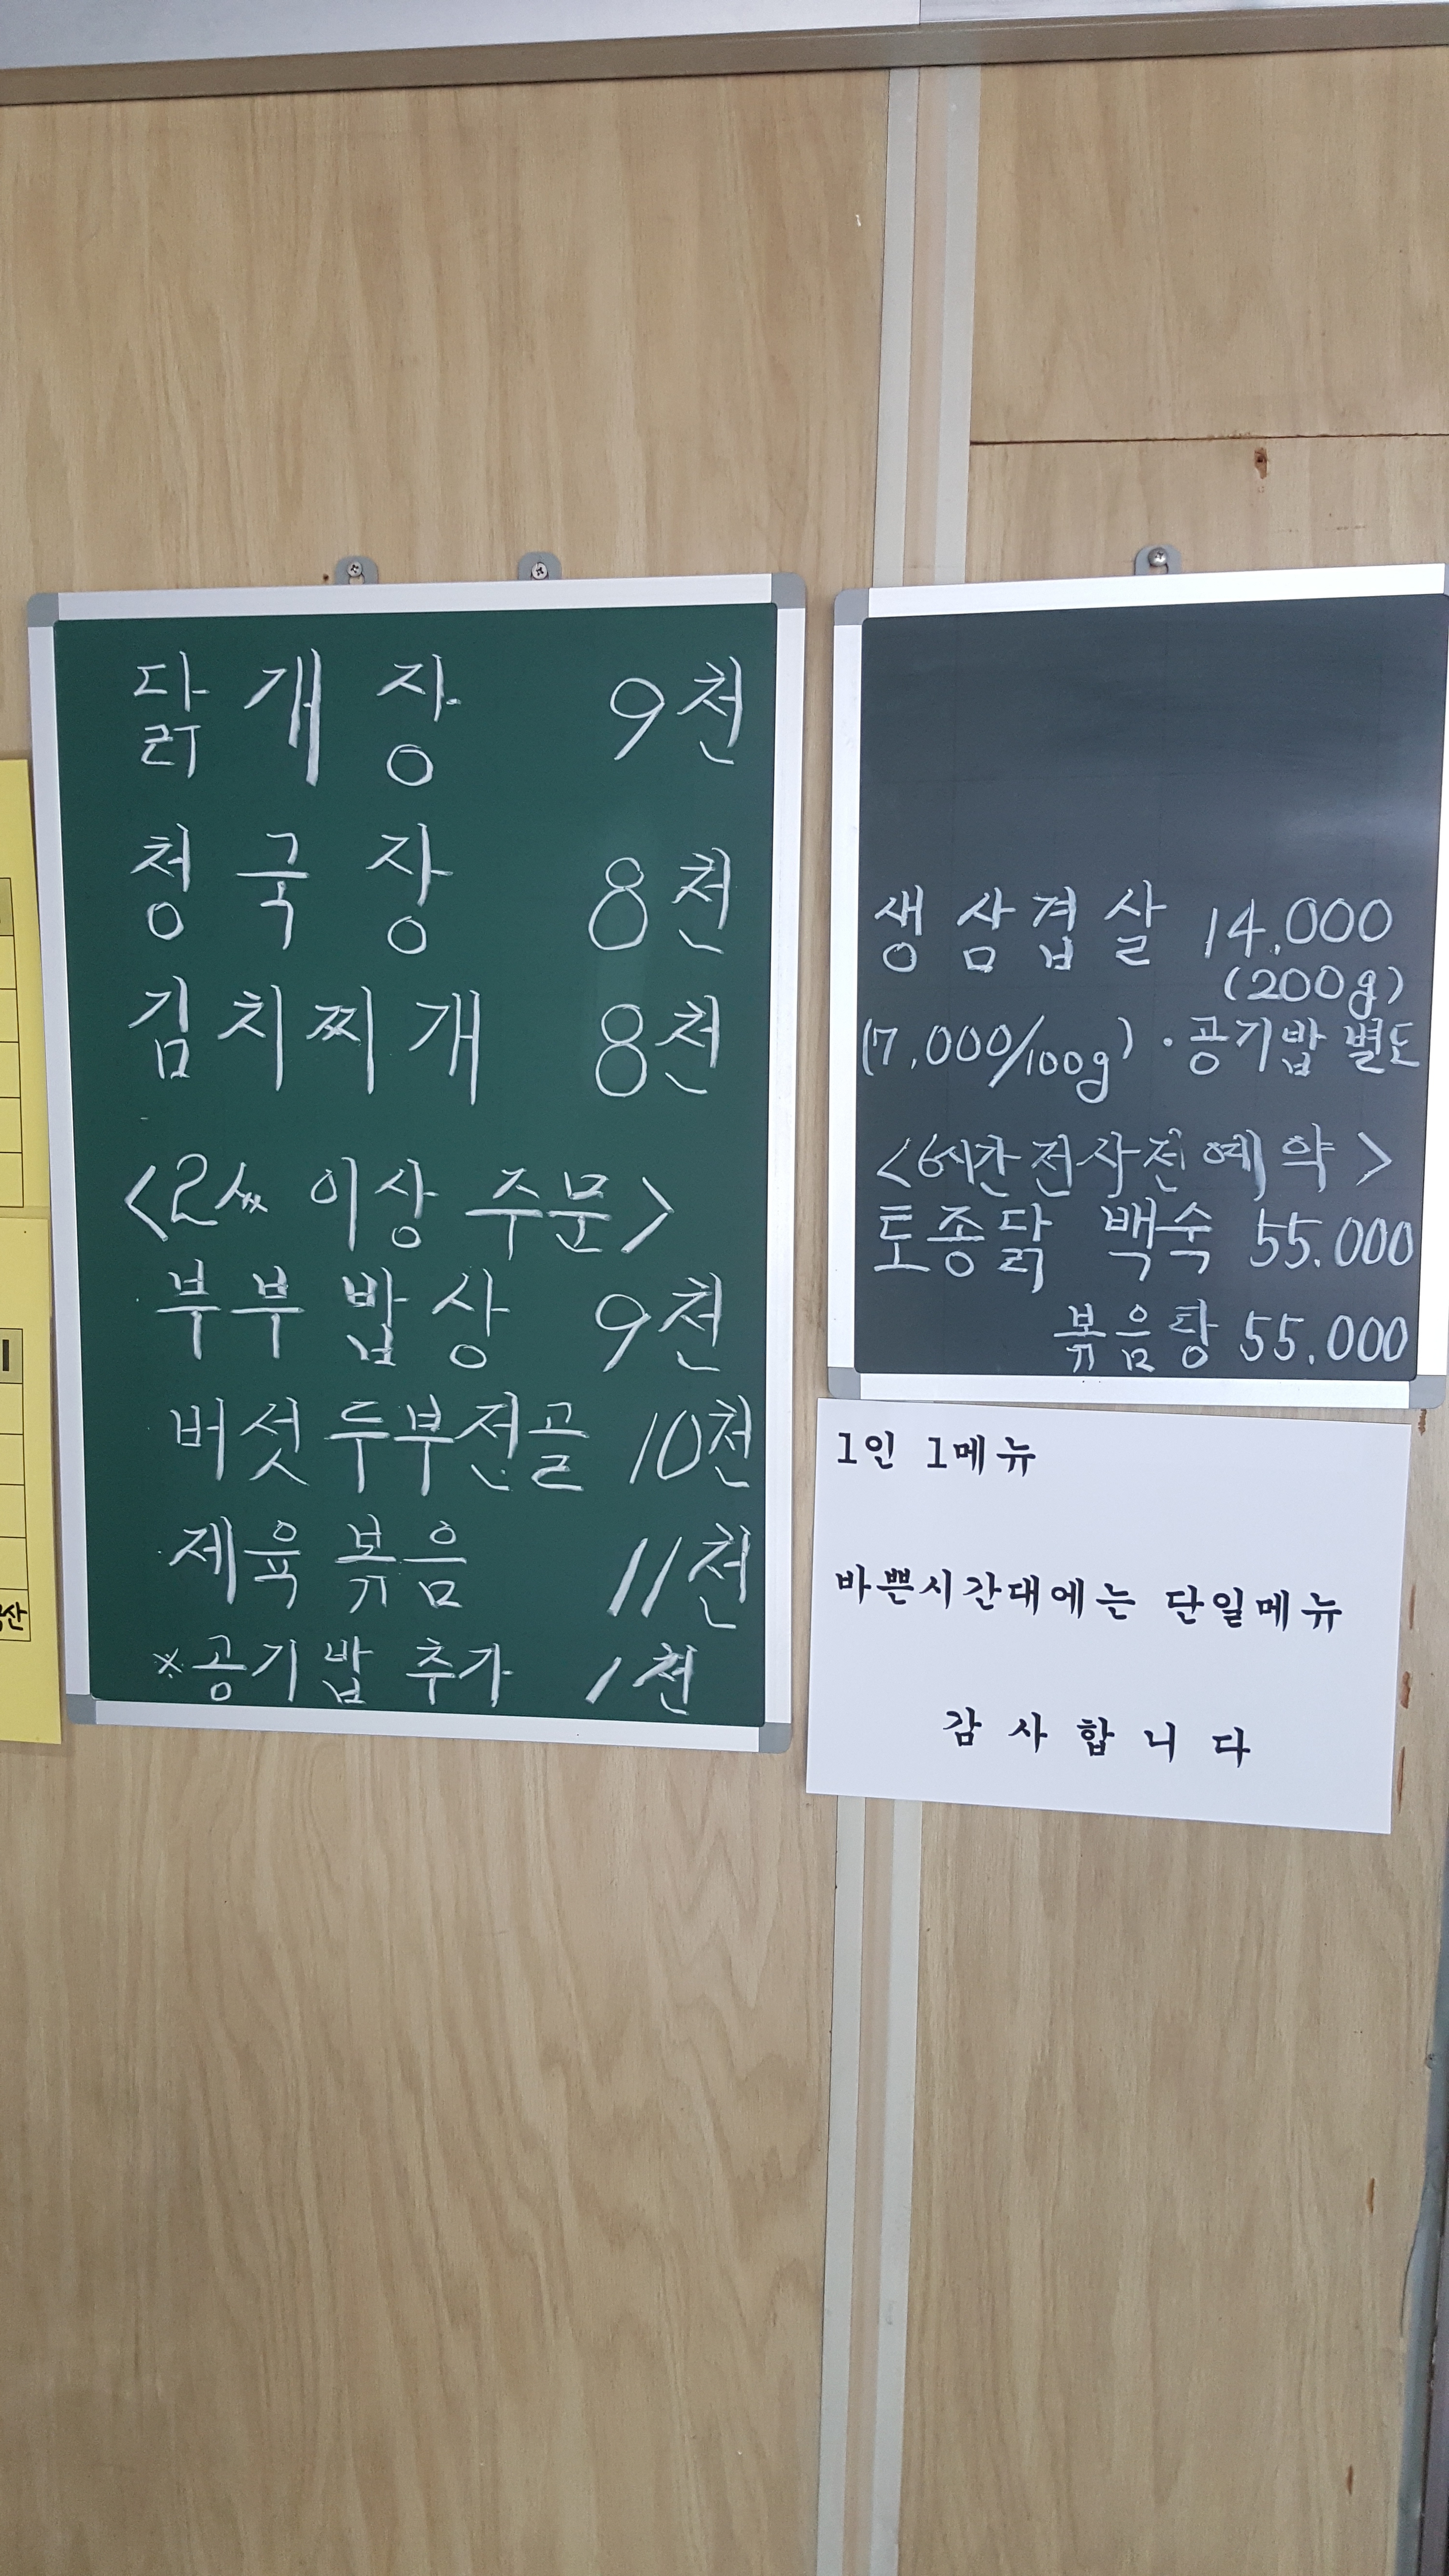 닭개장 9천
청국장 8천
김치찌개 8천
<2人 이상 주문>
부부 밥상 9천
버섯두부전골 10천
제육 볶음 11천
※공기밥 추가 1천
생삼겹살 14.000
(200g)
(7.000/100g) · 공기밥 별도
<6시간전사전예약>
토종닭 백숙 55.000
볶음탕 55.000
1인 1메뉴
바쁜시간대에는 단일메뉴
감 사 합 니 다
산